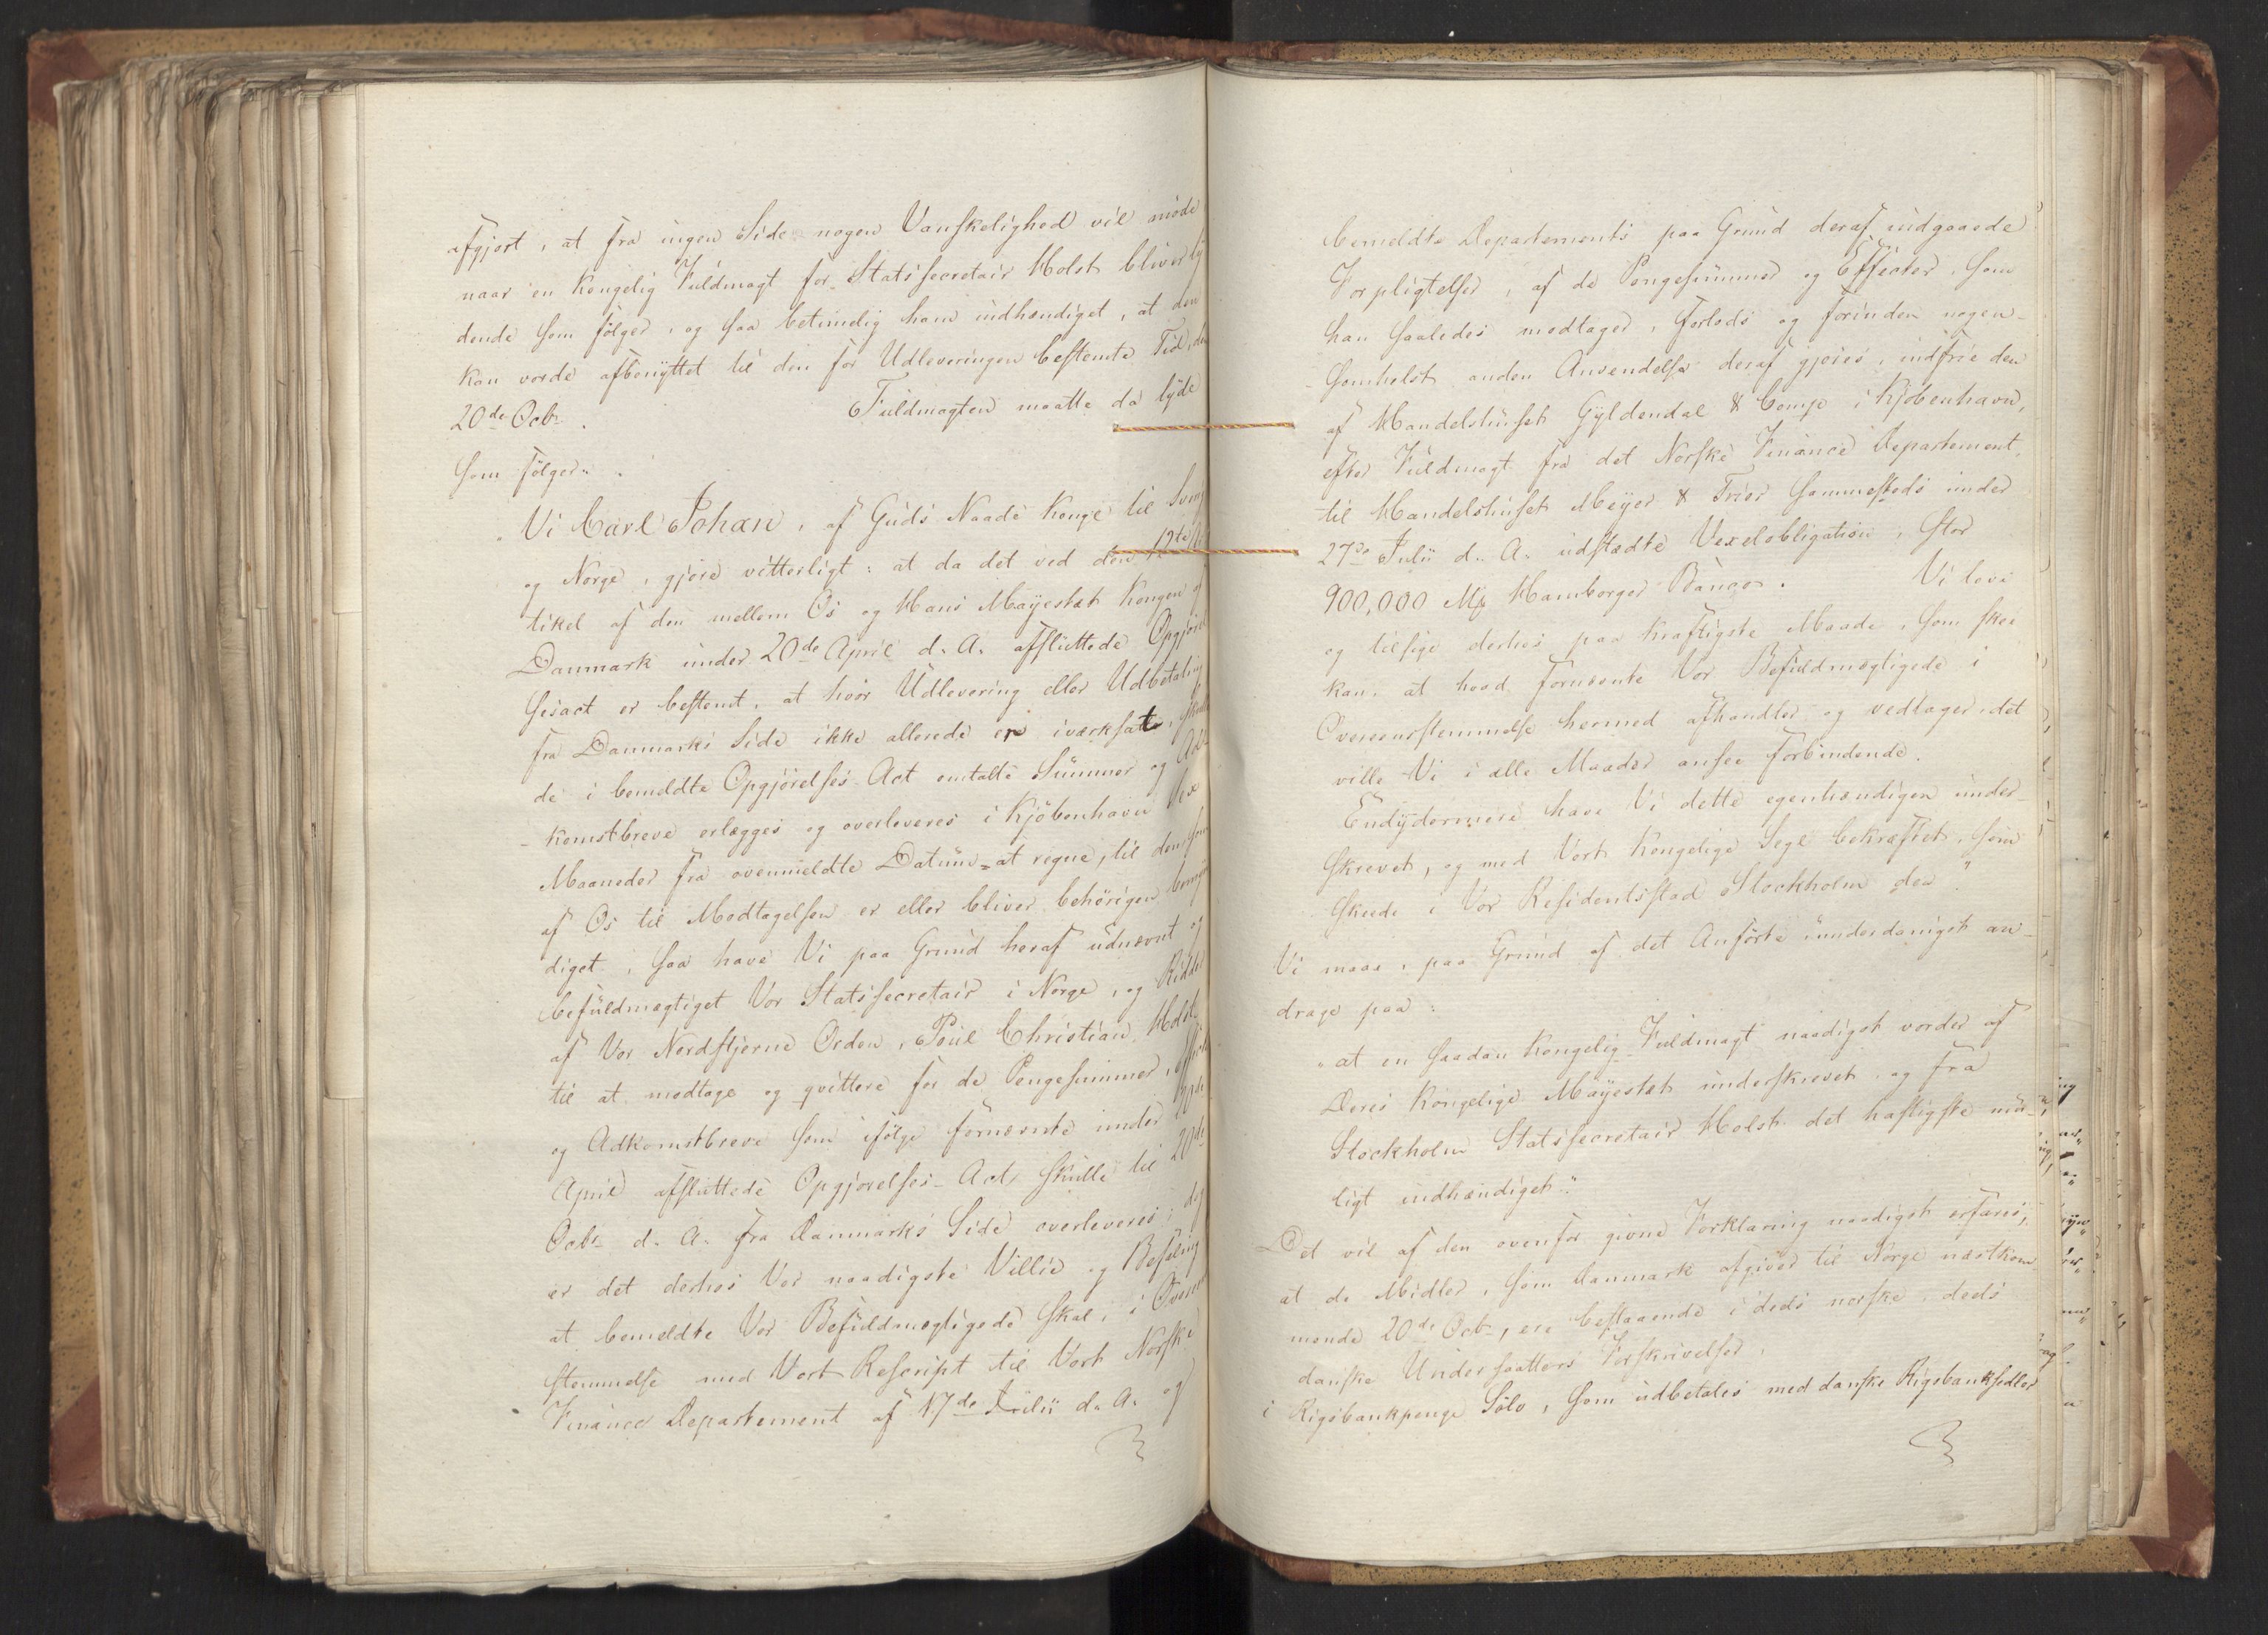 afgjort, at fra ingen Side nogen Vanskelighed vil möde
naar en Kongelig Fuldmagt for Statssecretair Holst bliver ly
dende som fölger, og saa betimelig ham indhændiget, at den
kan vorde afbenyttet til den for Udleveringen bestemte Tid, den
20de Octbr. Fuldmagten maatte da lyde
som fölger:
"Vi Carl Johan, af Guds Naade Konge til Sverig
og Norge, gjöre vitterligt: at da det ved den 12te Ar
tikel af den mellem Os og Hans Mayestæt Kongen af
Danmark under 20de April d. A. afsluttede Opgjörel
sesact er bestemt, at hvor Udlevering eller Udbetaling
fra Danmarks Side ikke allerede er iværksat, skulle
de i bemeldte Opgjörelses-Act omtalte Summer og Ad-
komstbreve erlægges og overleveres i Kjöbenhavn sex
Maaneder fra ovenmeldte Datum at regne, til den som
af Os til Modtagelsen er eller bliver behörigen bemyn
diget; saa have Vi paa Grund heraf udnævnt og
befuldmægtiget Vor Statssecretair i Norge, og Ridder
af Vor Nordstjerne Orden, Poul Christian Holst,
til at modtage og qvittere for de Pengesummer,
og Adkomstbreve som ifölge fornævnte under 20de
April afsluttede Opgjörelses-Act skulle til 20de
Octbr d. A. fra Danmarks Side overleveres; og
er det derhos Vor naadigste Villie og Befaling
at bemeldte Vor Befuldmægtigede skal, i Overens
stemmelse med Vort Rescript til Vort Norske
Finance Departement af 17de Julii d. A. og
bemeldte Departements paa Grund deraf indgaaede
Forpligtelser, af de Pengesummer og Effecter, som
han saaledes modtager, forlods og forinden nogen-
somhelst anden Anvendelse deraf gjöres, indfrie den
af Handelshuset Gyldendal & Comp i Kjöbenhavn,
efter Fuldmagt fra det Norske Finance Departement,
til Handelshuset Meyer & Trier sammesteds under
27de Julii d. A. udstædte Vexelobligation, stor
900,000 Mk Hamborger Banco. Vi love
og tilsige derhos paa kraftigste Maade, som skee
kan, at hvad fornævnte Vor Befuldmægtigede i
Overeensstemmelse hermed afhandler og vedtager, det
ville Vi i alle Maader ansee forbindende.
Endydermere have Vi dette egenhændigen under-
skrevet, og med Vort Kongelige Segl bekræftet, som
skeede i Vor Residentsstad Stockholm den"
Vi maae, paa Grund af det Anförte underdanigst an-
drage paa:
"at en saadan Kongelig Fuldmagt naadigst vorder af
Deres Kongelige Mayestæt underskrevet og fra
Stockholm Statssecretair Holst det hastigste mu-
ligt indhændiget."
Det vil af den ovenfor givne Forklaring naadigst erfares,
at de Midler, som Danmark afgiver til Norge næstkom-
mende 20de Octbr, ere bestaaende i deels norske, deels
danske Undersaatters Forskrivelser,
i Rigsbankpenge Sölv, som udbetales med danske Rigsbanksedler